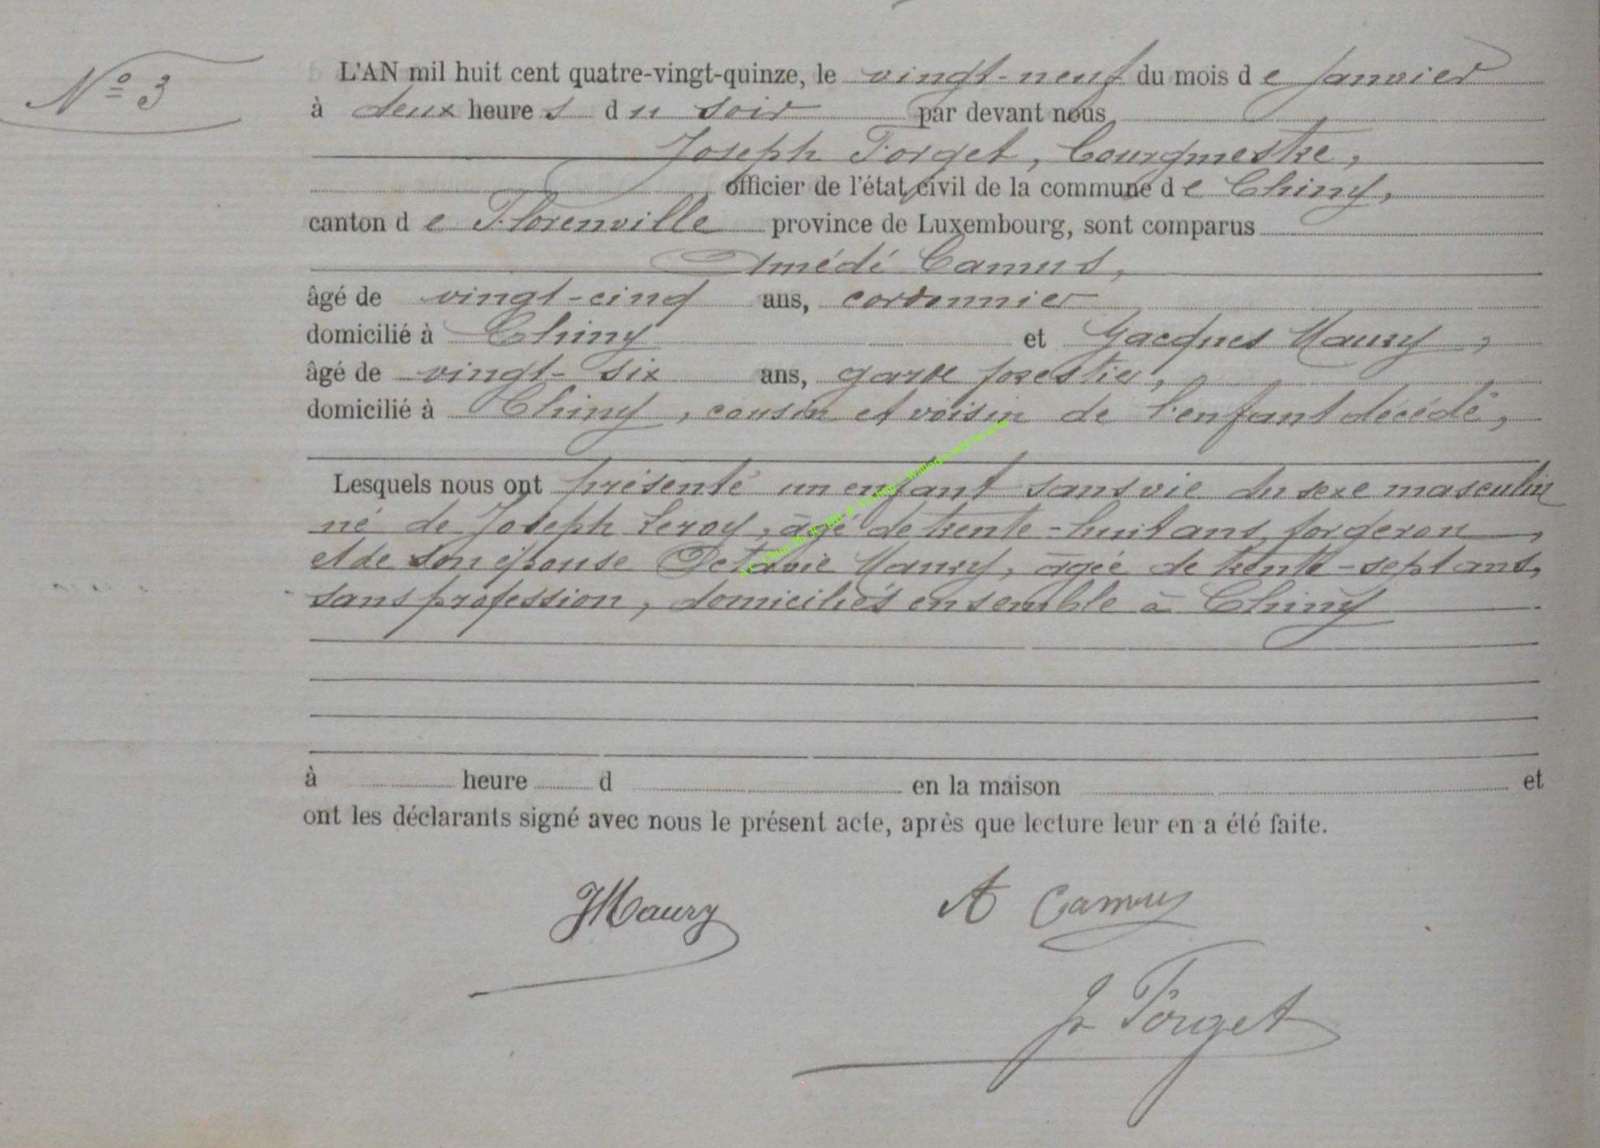 Nº 3
L'AN mil huit cent quatre-vingt-quinze, le vingt-neuf du mois de janvier
à deux heures du soir par devant nous
Joseph Forget, bourgmestre,
officier de l'état civil de la commune de Chiny,
canton de Florenville province de Luxembourg, sont comparus
Amédé Camus,
âgé de vingt-cinq ans, cordonnier
domicilié à Chiny et Jacques Maury,
âgé de vingt-six ans, garde forestier,
domicilié à Chiny, cousin et voisin de l'enfant décédé,
Lesquels nous ont présenté un enfant sans vie du sexe masculin
né de Joseph Leroy, âgé de trente-huit ans, forgeron,
et de son épouse Octavie Maury, âgée de trente-sept ans,
sans profession, domiciliés ensemble à Chiny
à heure d en la maison et
ont les déclarants signé avec nous le présent acte, après que lecture leur en a été faite.
JMaury A Camus
Jh Forget